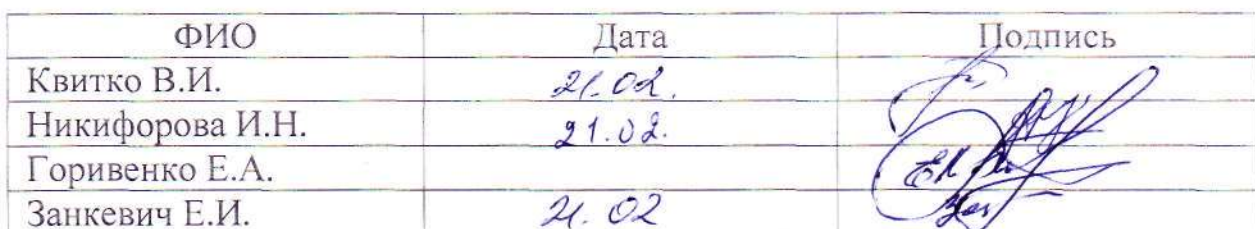 ФИО Дата Подпись
Квитко В.И. 21.02.
Никифорова И.Н. 21.02.
Горивенко Е.А.
Занкевич Е.И. 21.02